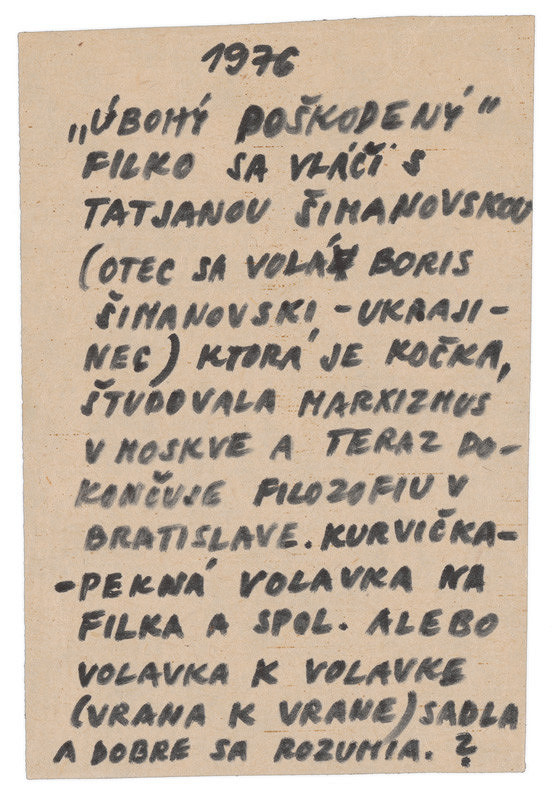 1976
„ÚBOHÝ POŠKODENÝ"
FILKO SA VLÁČI S
TATJANOU ŠIMANOVSKOU
(OTEC SA VOLÁ BORIS
ŠIMANOVSKI - UKRAJI-
NEC) KTORÁ JE KOČKA,
ŠTUDOVALA MARXIZMUS
V MOSKVE A TERAZ DO-
KONČUJE FILOZOFIU V
BRATISLAVE. KURVIČKA-
-PEKNÁ VOLAVKA NA
FILKA A SPOL. ALEBO
VOLAVKA K VOLAVKE
(VRANA K VRANE) SADLA
A DOBRE SA ROZUMIA. ?